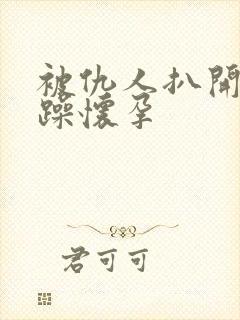 被仇人扒開
躁懷孕
君可可